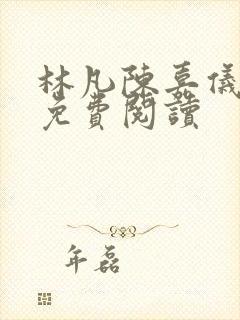 林凡陳嘉儀
免費閱讀
年磊